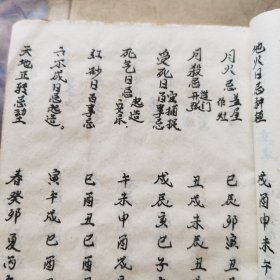 地火日忌种植
戌酉申未午
月火忌盖屋作灶
巳辰卯寅丑
月杀忌造门开张
丑戌未辰丑
受死日宜捕捉百事忌
戌辰亥巳子
死气日忌起造安床
午未申酉戌
红砂日百事忌
巳酉丑巳
六不成日忌起造
寅午戌巳
天地正转忌动土
春癸卯夏丙